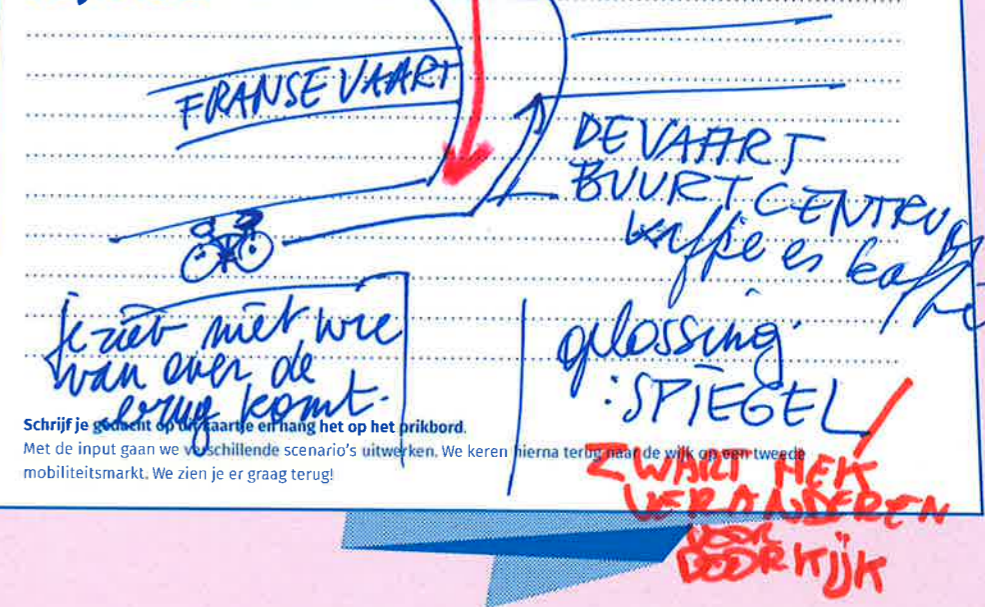 FRANSE VAART
DE VAART
BUURTCENTRUM
koffie es koffie
je ziet niet wie
van over de
brug komt.
oplossing:
:SPIEGEL
Schrijf je gedacht op dit kaartje en hang het op het prikbord.
Met de input gaan we verschillende scenario's uitwerken. We keren hierna terug naar de wijk op een tweede
mobiliteitsmarkt. We zien je er graag terug!
ZWART HEK
VERANDEREN
DOOR
DOORKIJK